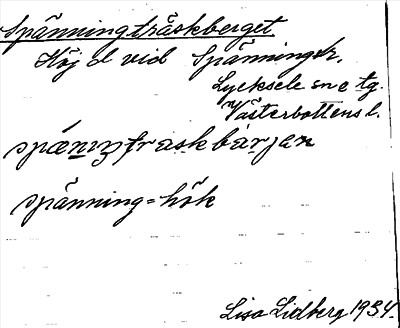 Spänningträskberget
Höjd vid Spänningtr.
Lycksele sn o tg.
Västerbottens l.
spæ̀niŋtraskbárjan
spänning = hök
Lisa Lidberg 1934.